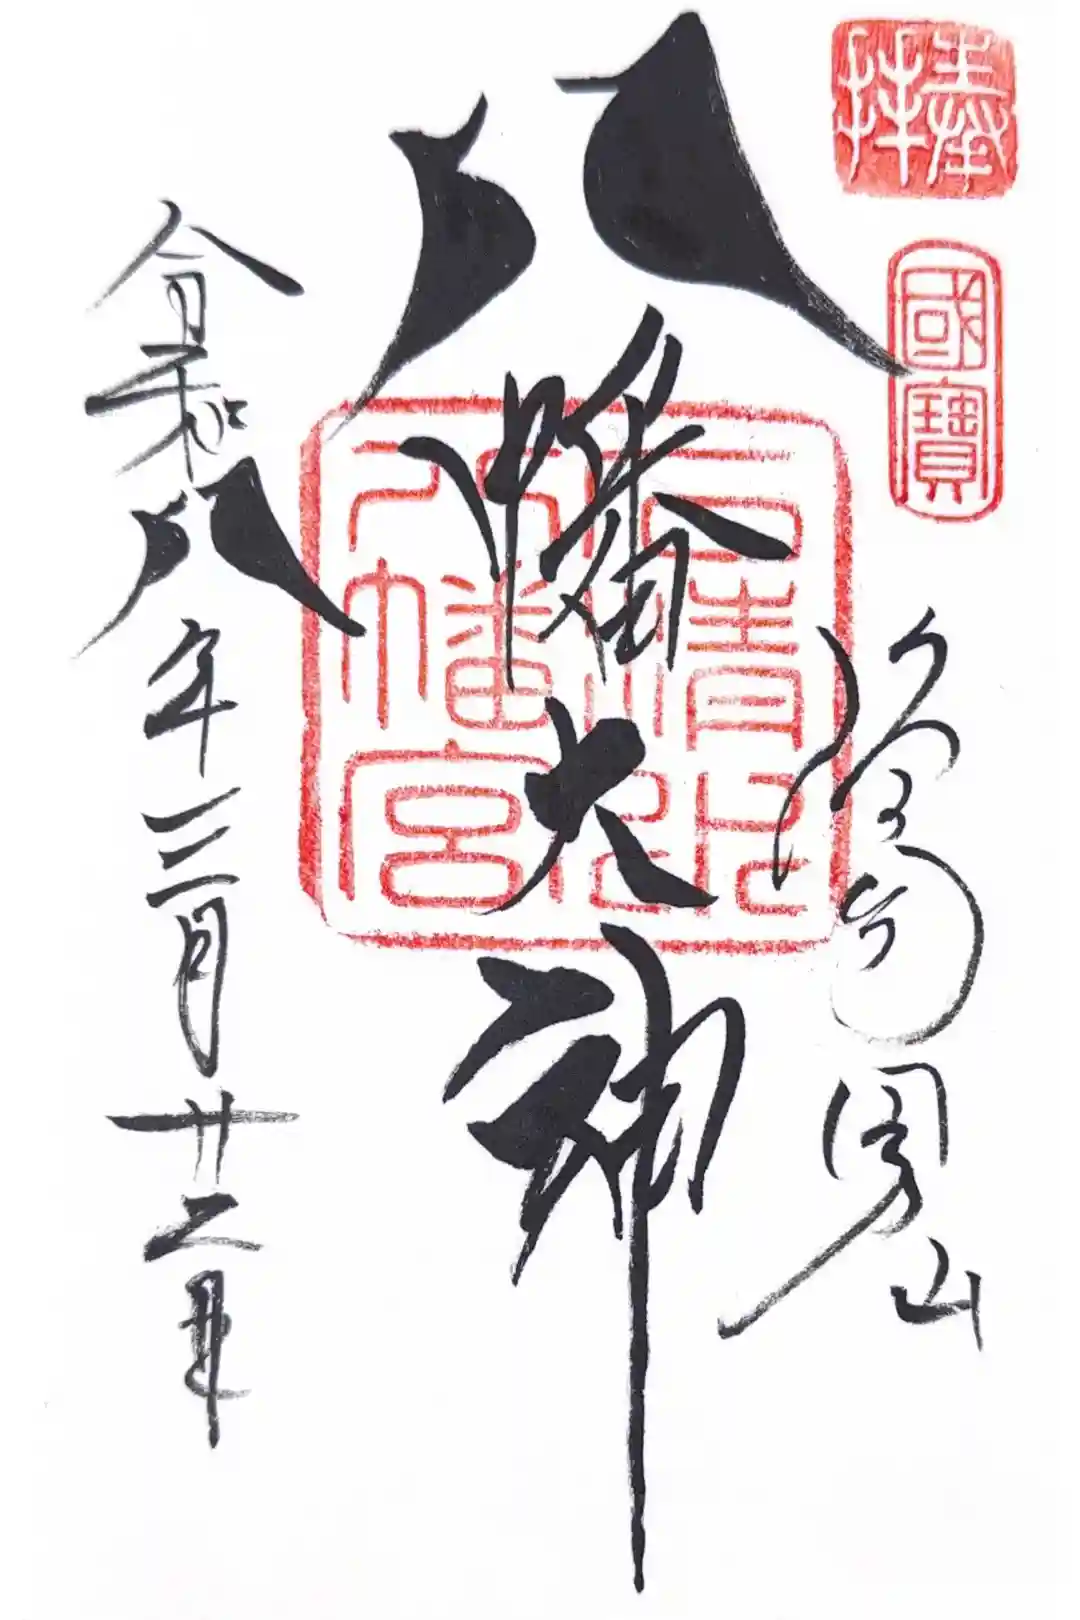 奉拝
國寶
洛南男山
八幡大神
石清水
八幡宮
令和八年三月廿二日